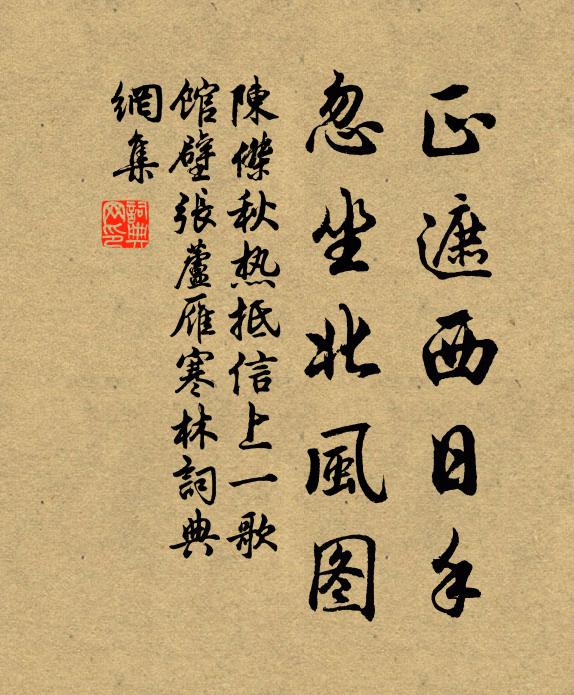 正遮西日手
忽坐北風图
陳傑秋热抵信上一歌
館壁張蘆雁寒林詞典
網集
詞典
网印